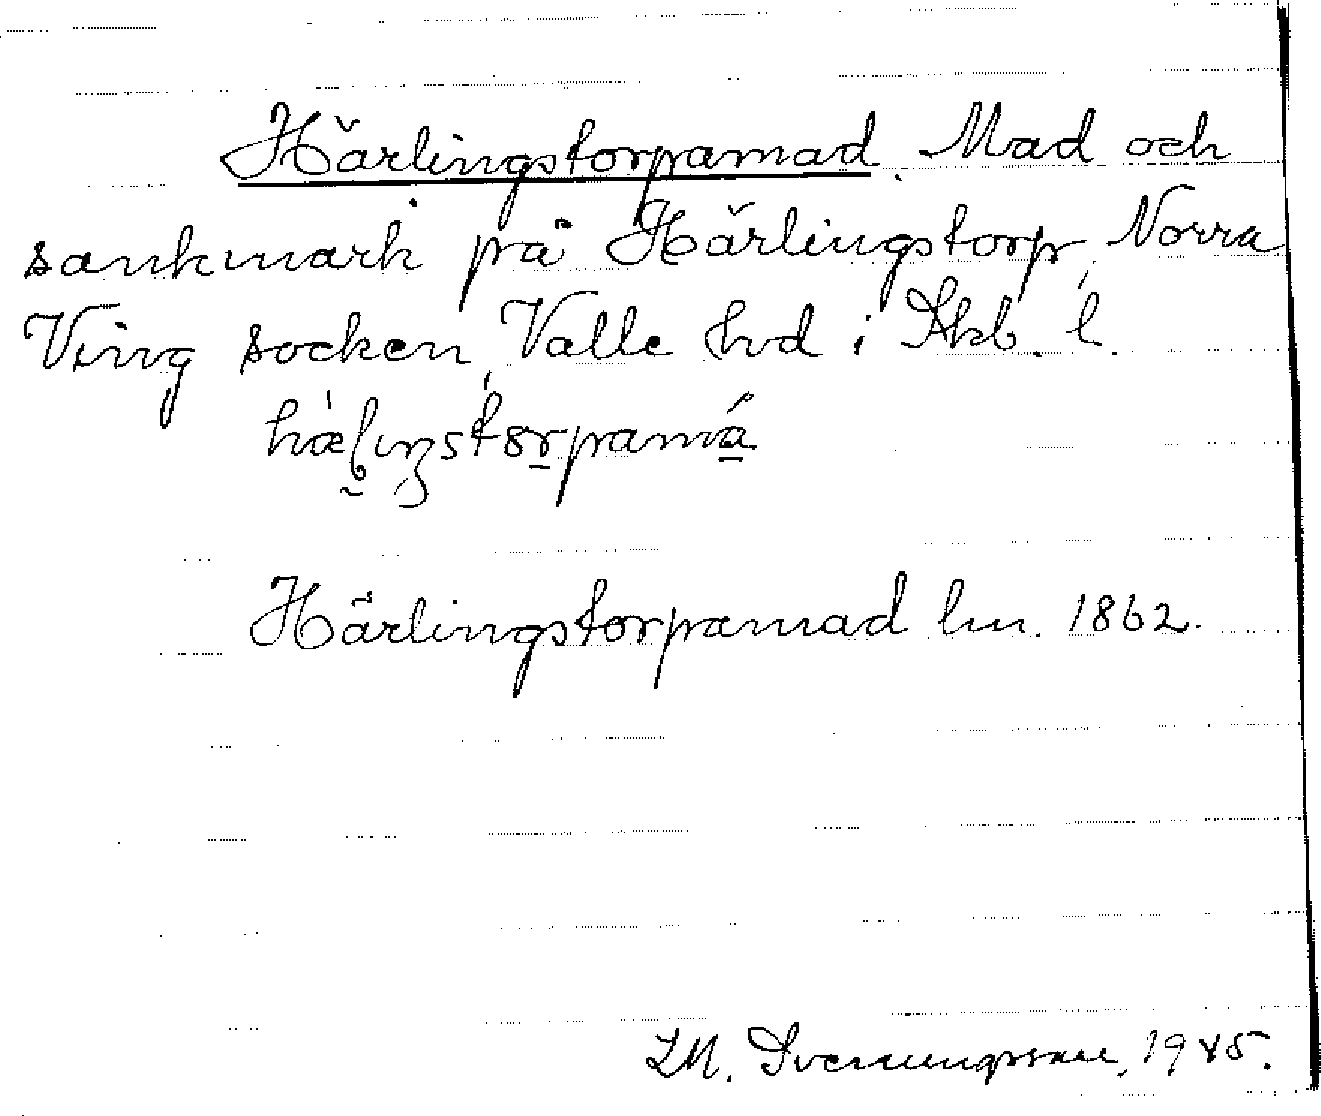 Härlingstorpamad. Mad och
sankmark på Härlingstorp, Norra
Ving socken, Valle hd i Skb. l.
Härlingstorpamad lm. 1862.
M. Svenungsson, 1945.